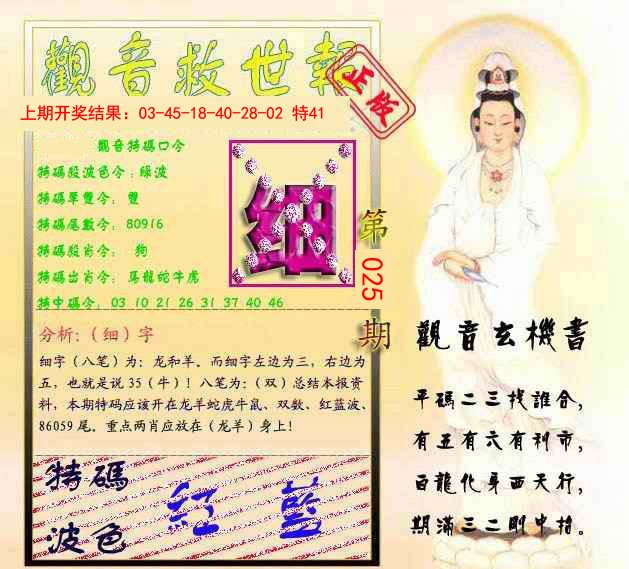 觀音救世報
正版
上期开奖结果：03-45-18-40-28-02 特41
觀音特碼口令
特碼殺波色令：綠波
特碼單雙令： 雙
特碼尾數令：80916
特碼殺肖令： 狗
特碼出肖令：馬龍蛇牛虎
特中碼令：03 10 21 26 31 37 40 46
细
第
025
期
分析：（细）字
细字（八笔）为：龙和羊。而细字左边为三，右边为
五，也就是说 35（牛）！八笔为：（双）总结本报资
料，本期特码应该开在龙羊蛇虎牛鼠、双数、红蓝波、
86059 尾。重点两肖应放在（龙羊）身上！
特碼
波色
紅 藍
觀音玄機書
平碼二三找誰合，
有五有六有利市，
白龍化身西天行，
期滿三二剛中指。